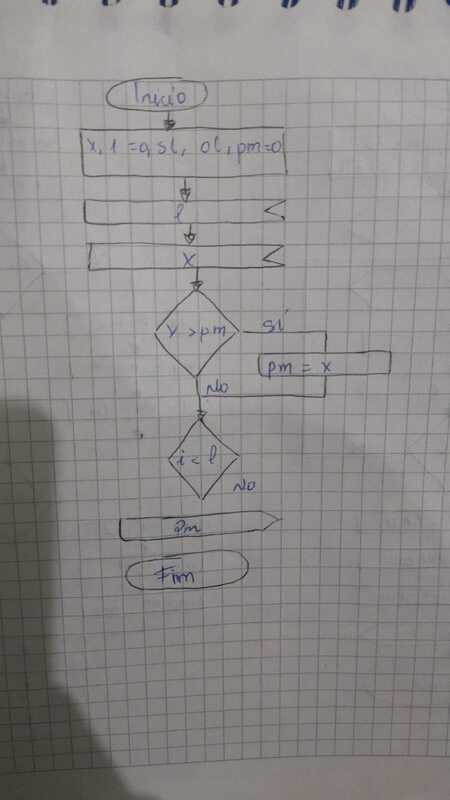 Inicio
x, 1 = 0, sl, ol, pm=0
l
X
x > pm
Si
pm = x
No
i < l
No
pm
Fim